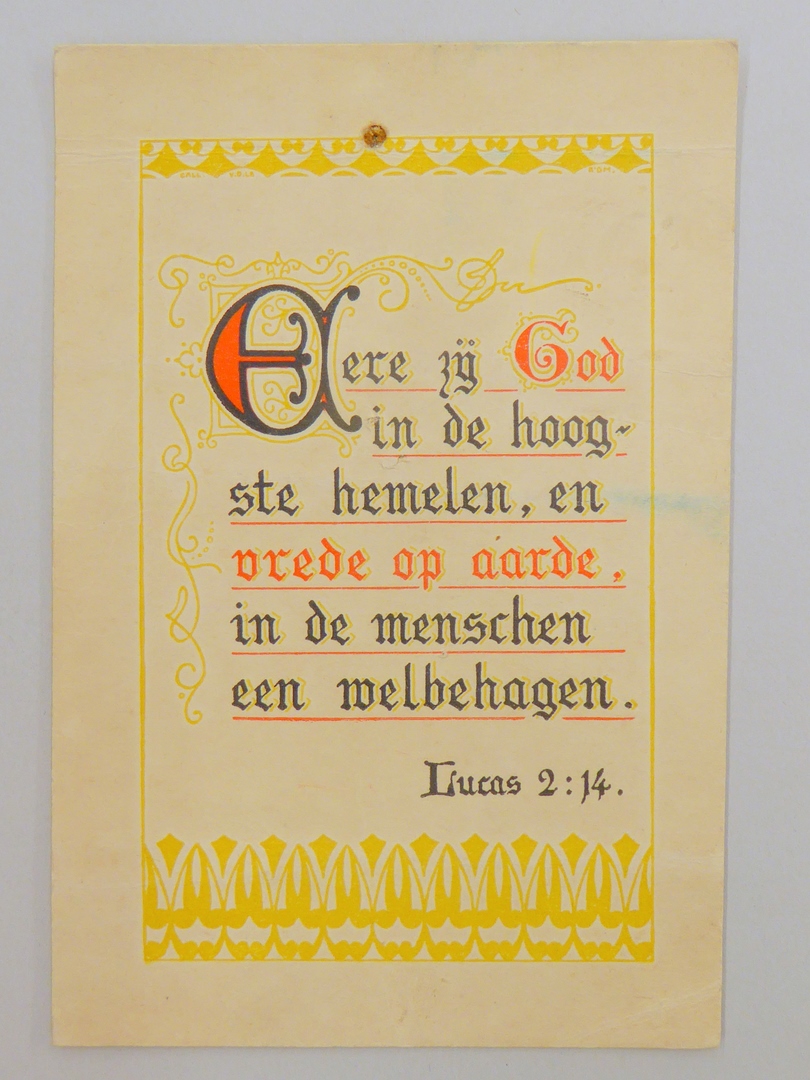 Eere zij God
in de hoog-
ste hemelen, en
vrede op aarde,
in de menschen
een welbehagen.
Lucas 2:14.